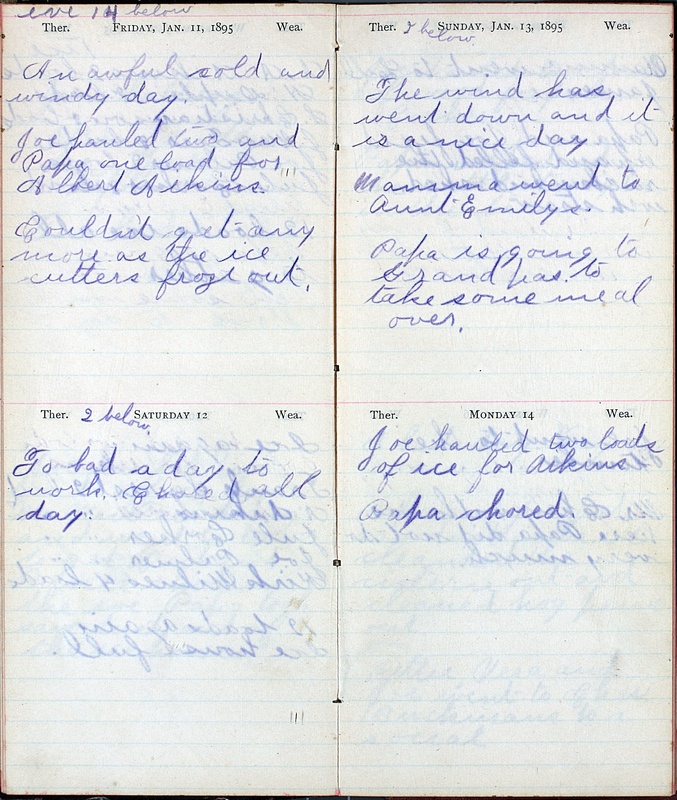 eve 14 below
Ther. FRIDAY, JAN. 11, 1895 Wea.
An awful cold and
windy day.
Joe hauled two and
Papa one load for
Albert Aikins.
Couldn't get any
more as the ice
cutters froze out.
Ther. 2 below. SATURDAY 12 Wea.
To bad a day to
work. Chored all
day.
Ther. 2 below. SUNDAY, JAN. 13, 1895 Wea.
The wind has
went down and it
is a nice day
Mamma went to
Aunt Emilys.
Papa is going to
Grand pas. to
take some meal
over.
Ther. MONDAY 14 Wea.
Joe hauled two loads
of ice for Aikins
Papa chored.